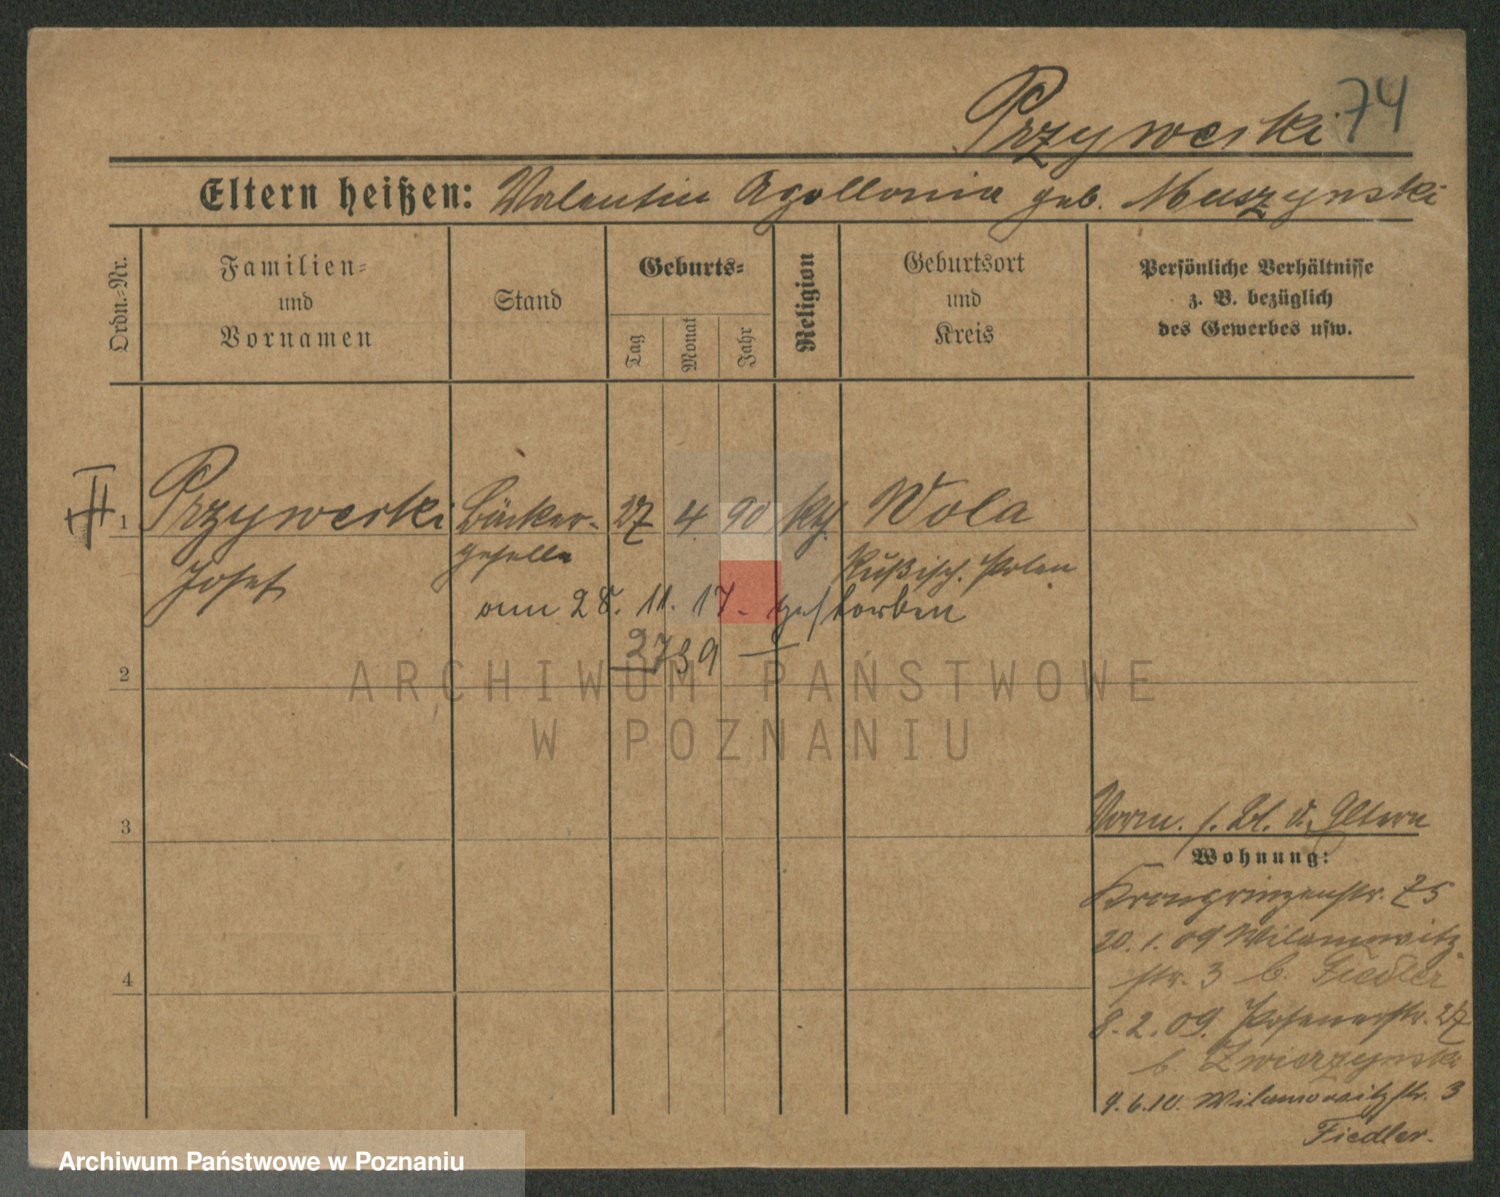 74
Przywerski
Eltern heißen: Valentin Apollonia geb. Muszynski
Ordn.-Nr.
Familien-
und
Vornamen
Stand
Geburts-
Tag
Monat
Jahr
Religion
Geburtsort
und
Kreis
Persönliche Verhältnisse
z. B. bezüglich
des Gewerbes usw.
II
1 Przywerski Bäcker- 27 4. 90 kth. Wola
Josef geselle Rußisch. Polen
am 28. 11. 17 gestorben
2739
2
3
4
ARCHIWUM PAŃSTWOWE
W POZNANIU
Vorm. s. Bl. d. Eltern
Wohnung:
Kronprinzenstr. 75
20. 1. 09 Wilamowitz
str. 3 b. Fiedler
8. 2. 09. Posenerstr. 27
b. Zwierzynski
4. 6. 10. Wilamowitzstr. 3
Fiedler.
Archiwum Państwowe w Poznaniu